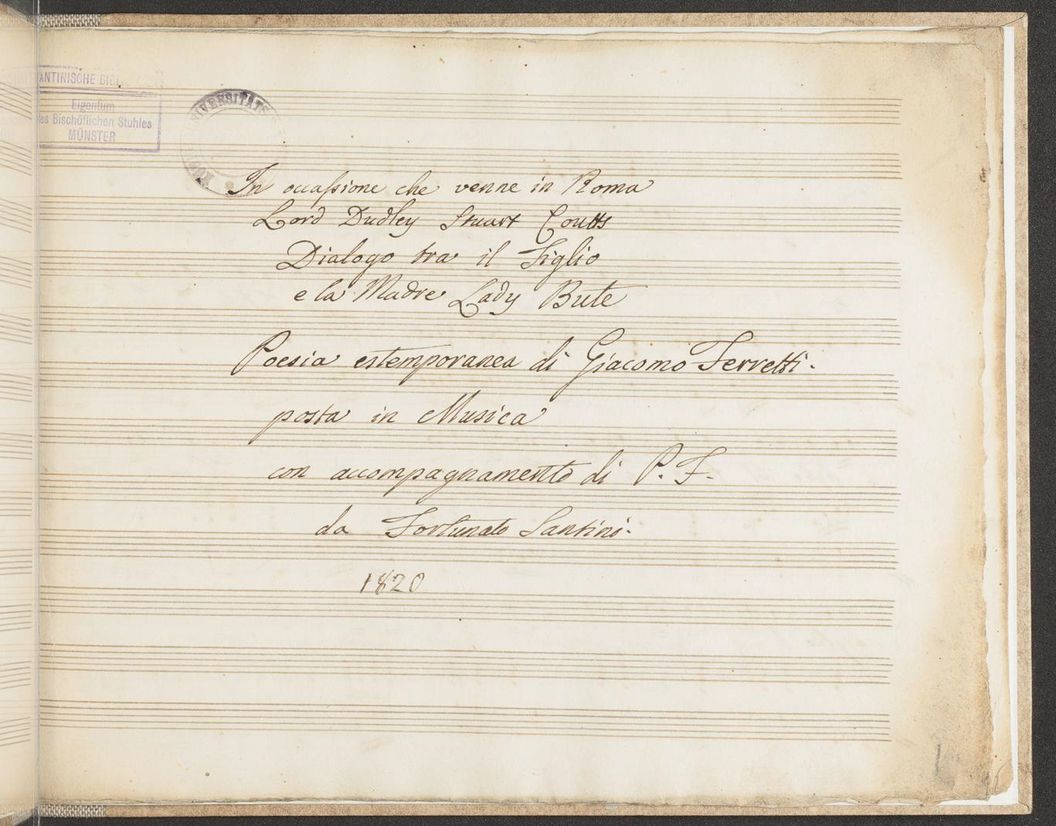 ANTINISCHE BI
Eigentum
es Bischöflichen Stuhles
MÜNSTER
IVERSITÄTS
In occassione che venne in Roma
Lord Dudley Stuart Coutts
Dialogo tra il Figlio
e la Madre Lady Bute
Poesia estemporanea di Giacomo Ferretti.
posta in Musica
con accompagnamento di P. F.
da Fortunato Santini.
1820